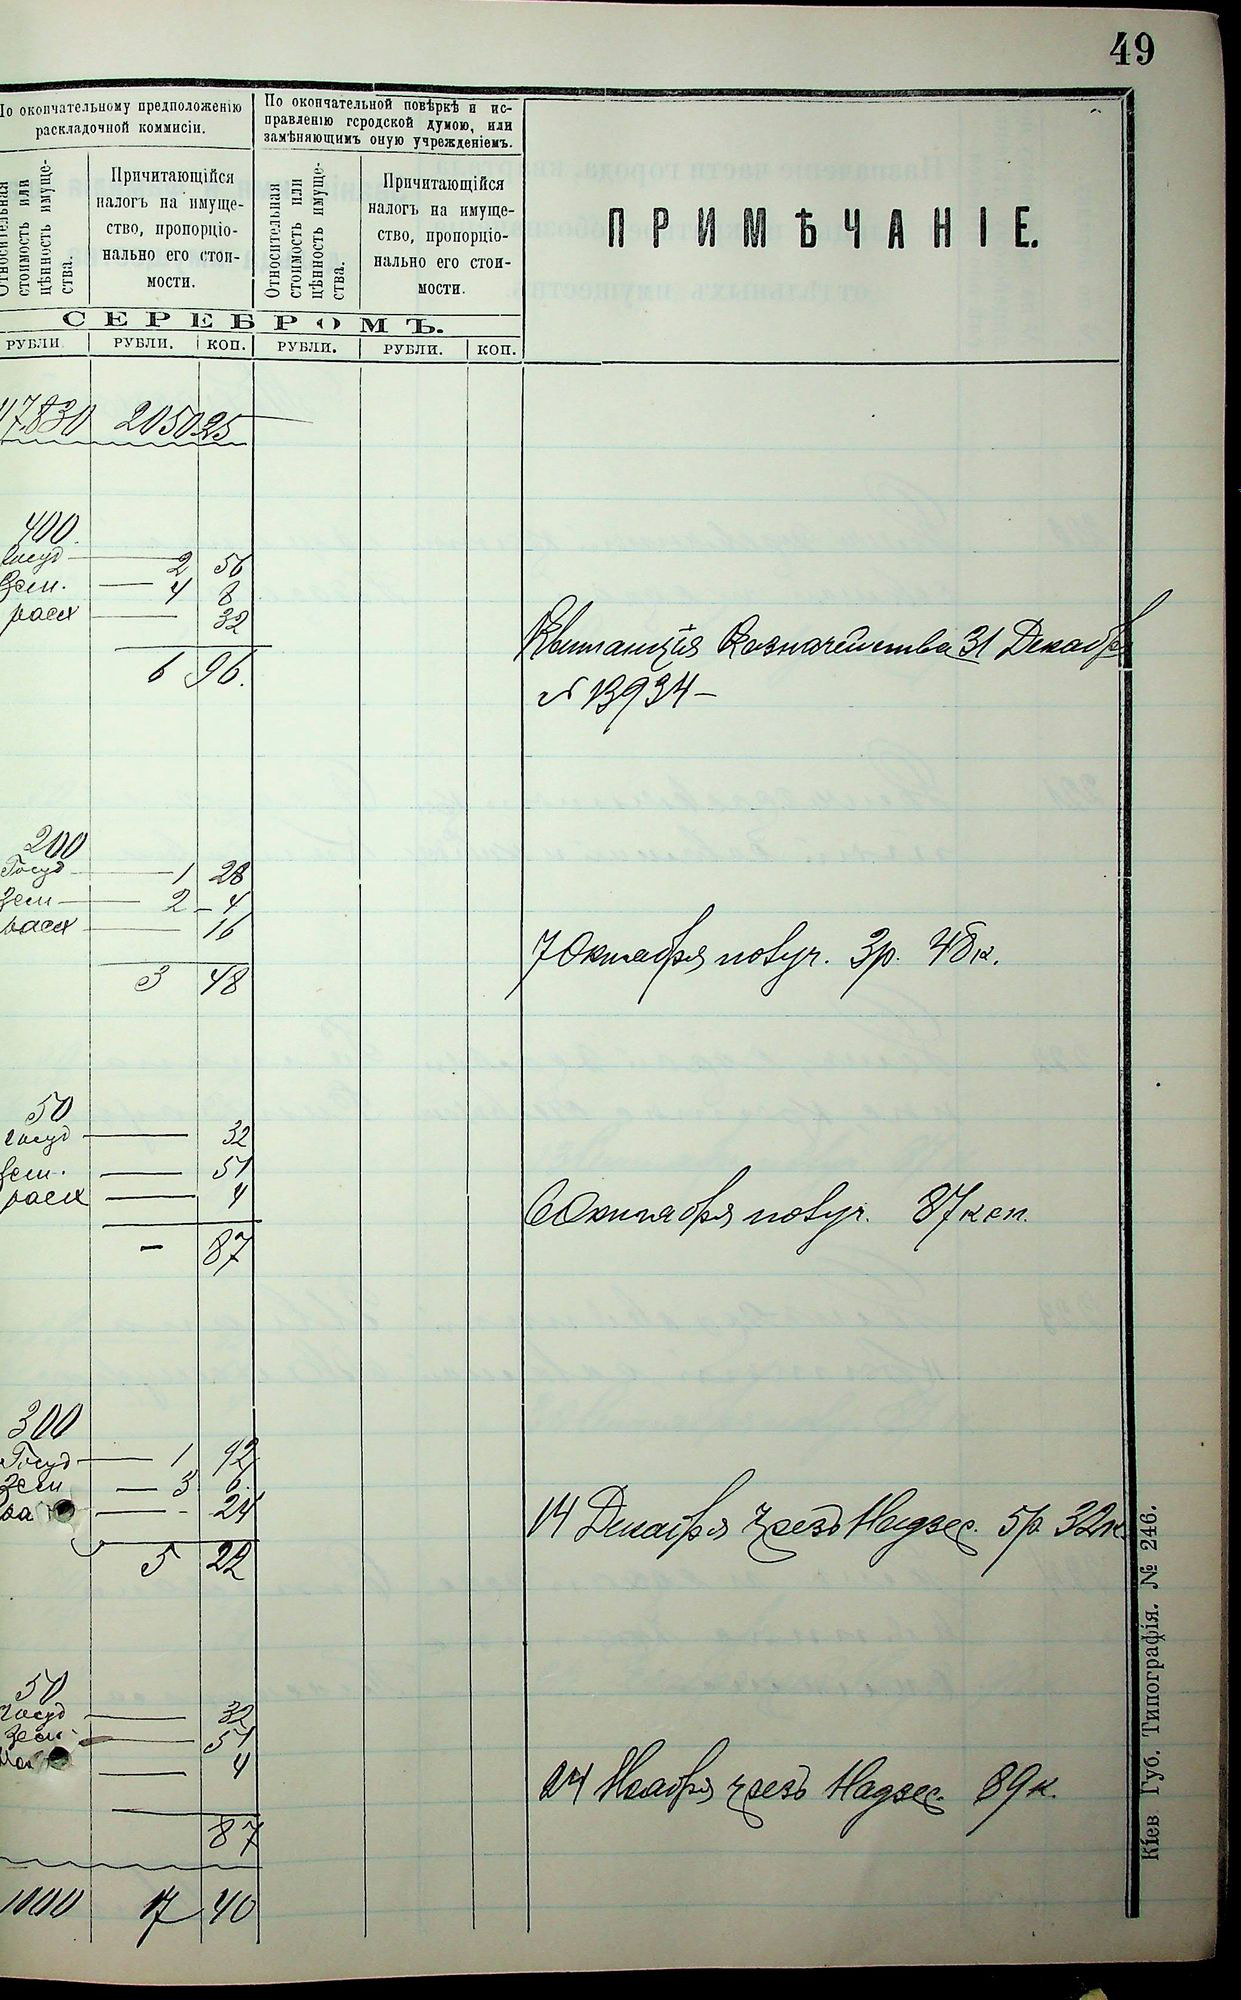 49
По окончательному предположенію
раскладочной коммисіи.
По окончательной повѣркѣ и ис-
правленію городской думою, или
замѣняющимъ оную учрежденіемъ.
Относительная
стоимость или
цѣнность имуще-
ства.
Причитающійся
налогъ на имуще-
ство, пропорціо-
нально его стои-
мости.
Относительная
стоимость или
цѣнность имуще-
ства.
Причитающійся
налогъ на имуще-
ство, пропорціо-
нально его стои-
мости.
ПРИМѢЧАНІЕ.
СЕРЕБРОМЪ.
РУБЛИ РУБЛИ. КОП. РУБЛИ. РУБЛИ. КОП.
17830 2050 25
400.
Госуд — 2 56
Зем. — 4 8
расх — 32
6 96.
Квитанція Казначейства 31 Декабря
№ 13934 –
200
Госуд — 1 28
Зем — 2 – 4
расх — 16
3 48
7 Октября получ. 3р. 48к.
50
Госуд — 32
Зем. — 51
расх — 4
– 87
6 Октября получ. 87 коп.
300
Госуд — 1 92
Зем — 3 6
ра — 24
5 22
14 Декабря чрезъ Надзес. 5р 32к.
50
Госуд — 32
Зем — 51
— 4
87
24 Ноября чрезъ Надзес. 89к.
1000 17 40
Кіев Губ. Типографія. № 246.